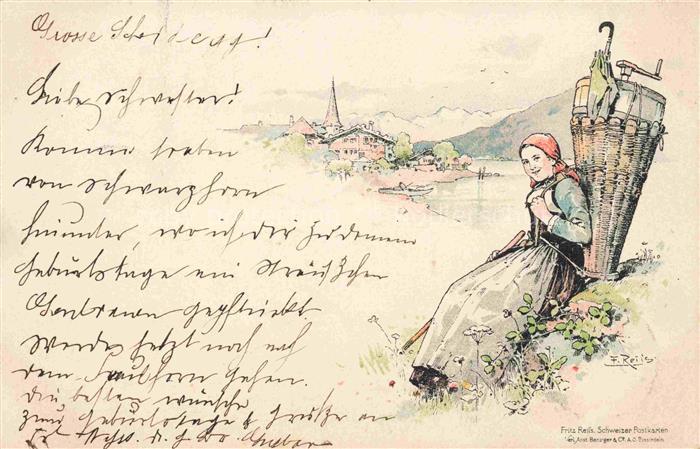 Grosse Scheidegg!
Liebe Schwester!
Komme soeben
von Schwarzhorn
hinunter, wo ich dir zu deinem
Geburtstage ein Sträußchen
gepflückt
Werde jetzt noch auf
dem Faulhorn gehen.
Die besten Wünsche
zum Geburtstage & Grüße an
F. Reiss
Fritz Reiss, Schweizer Postkarten
Verl. Anst. Benziger & Co. A.G. Einsiedeln